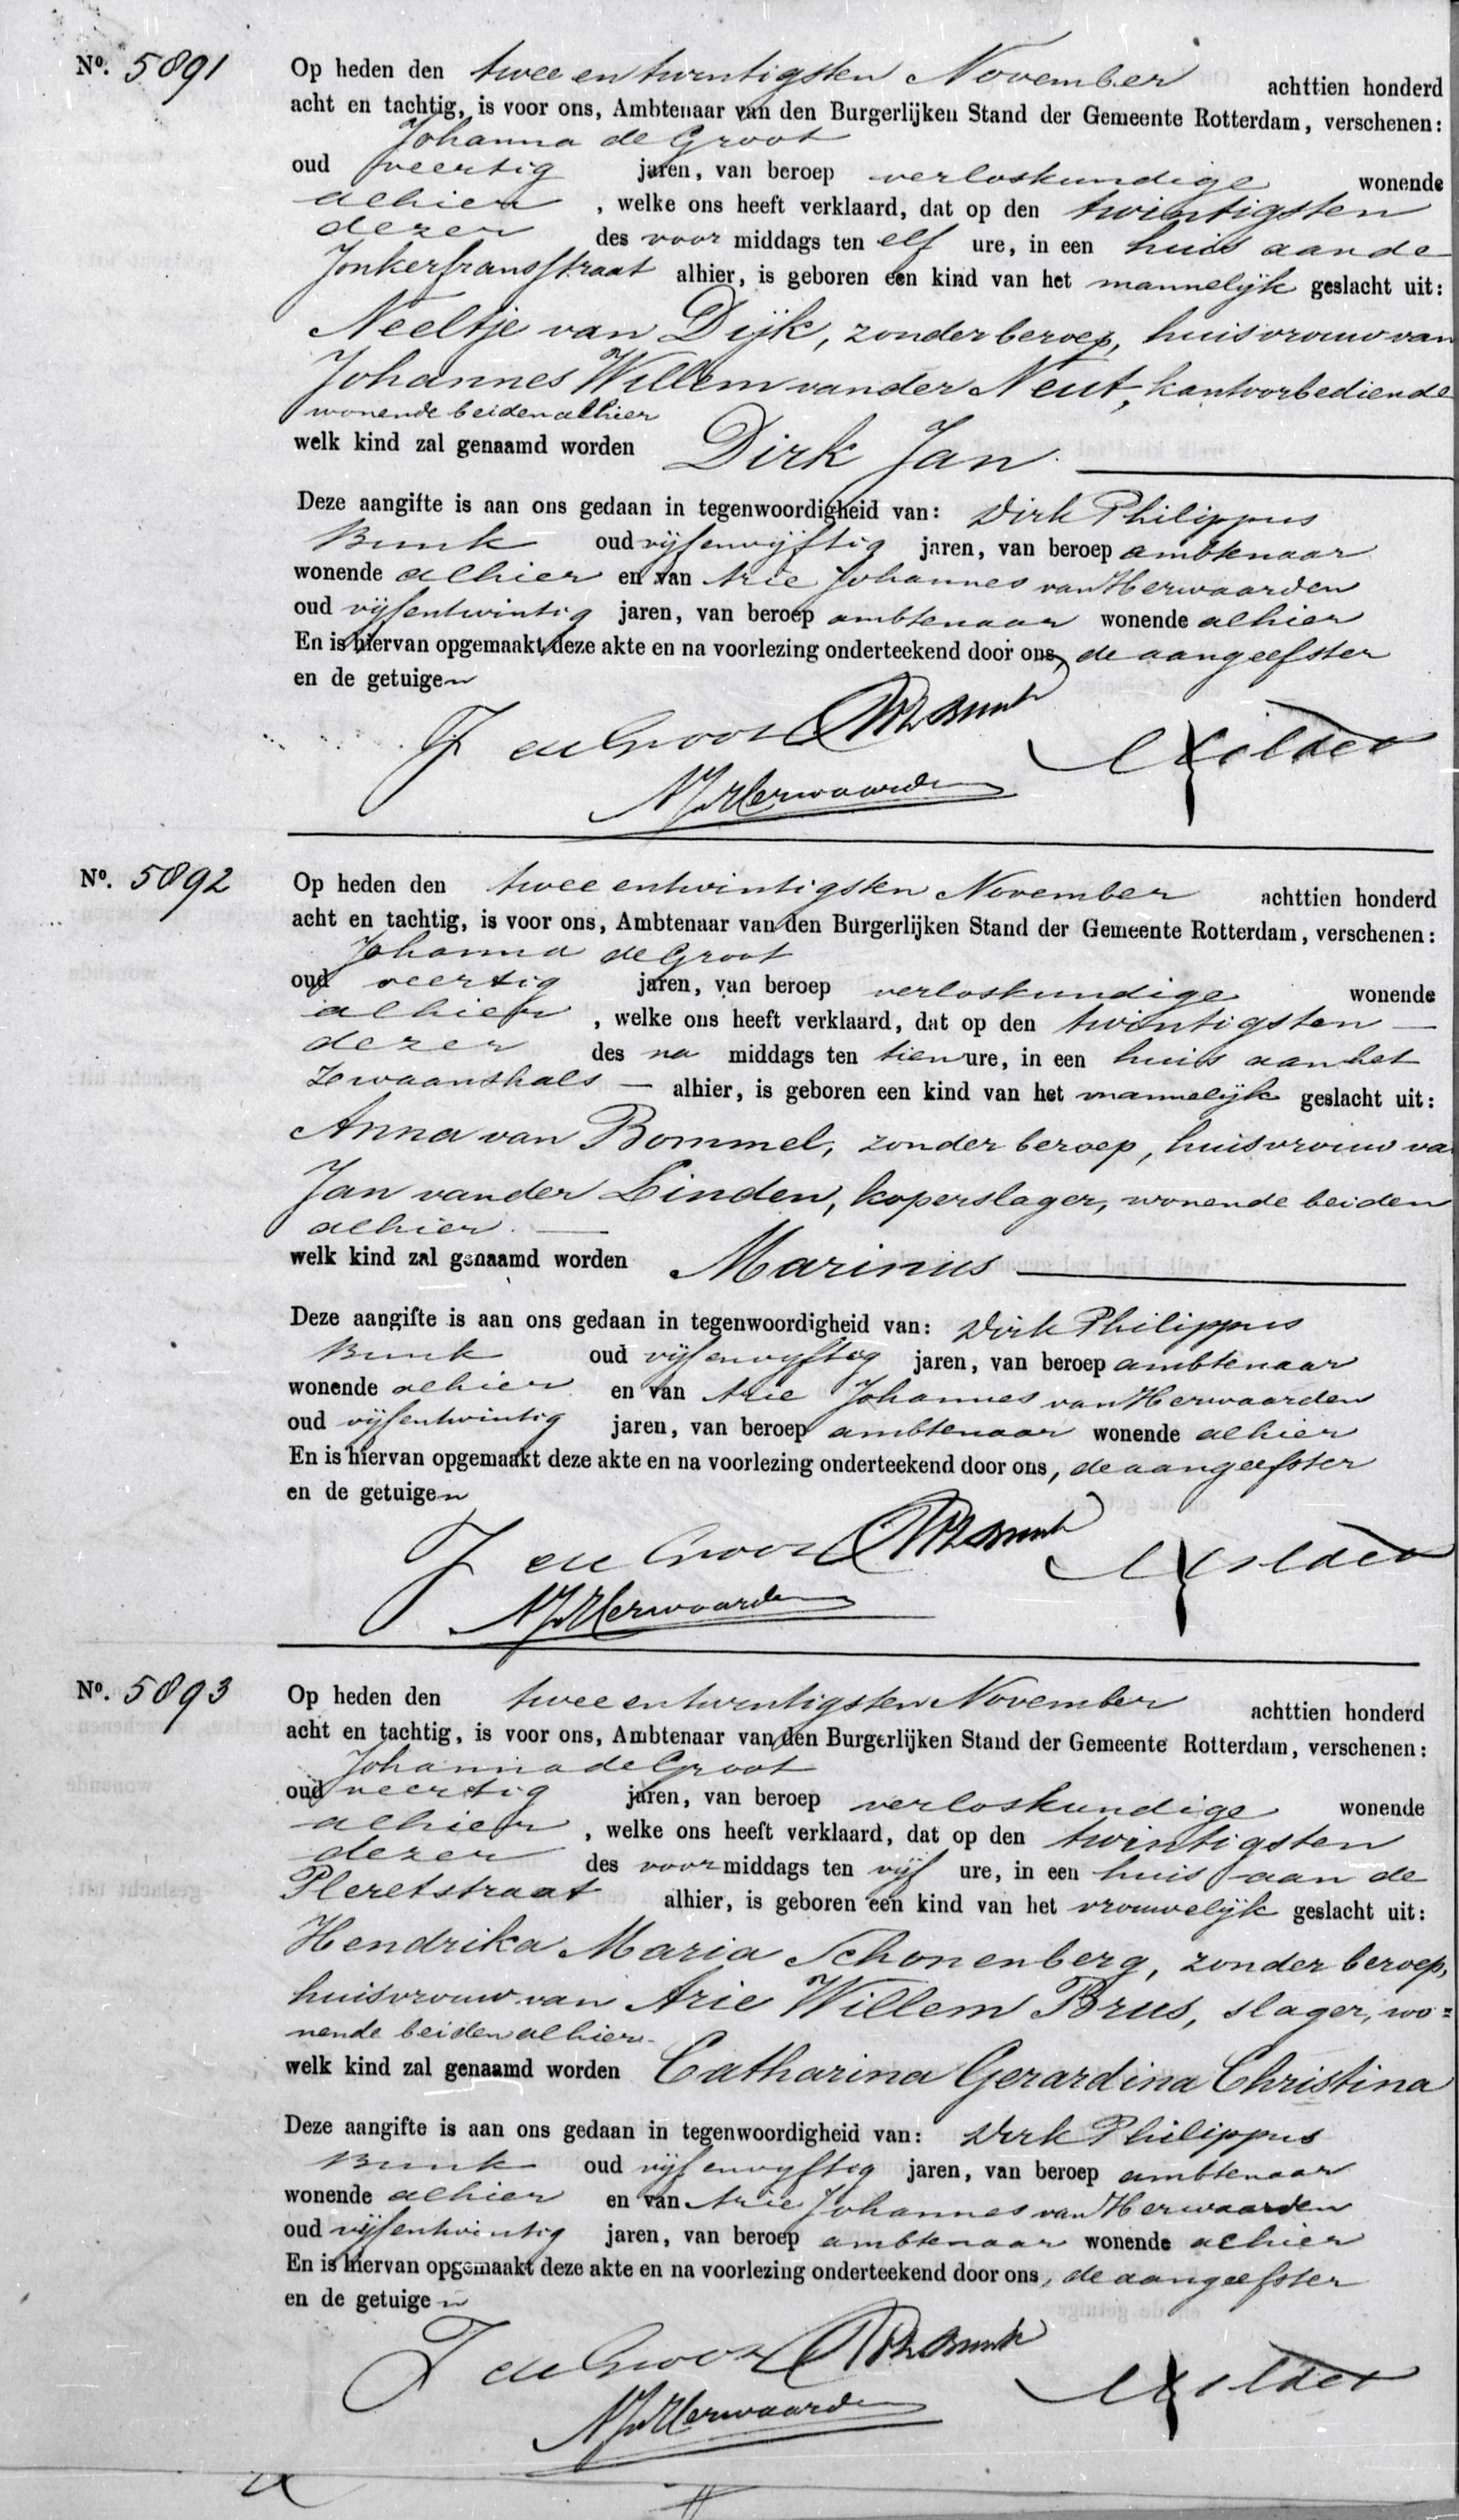 No. 5891
Op heden den twee en twintigsten November achttien honderd
acht en tachtig, is voor ons, Ambtenaar van den Burgerlijken Stand der Gemeente Rotterdam, verschenen:
Johanna de Groot
oud veertig jaren, van beroep verloskundige wonende
alhier, welke ons heeft verklaard, dat op den twintigsten
dezer des voor middags ten elf ure, in een huis aan de
Jonkerfransstraat alhier, is geboren een kind van het mannelijk geslacht uit:
Neeltje van Dijk, zonder beroep, huisvrouw van
Johannes Willem van der Neut, kantoorbediende
wonende beiden alhier
welk kind zal genaamd worden Dirk Jan.
Deze aangifte is aan ons gedaan in tegenwoordigheid van: Dirk Philippus
Bunk oud vijfenvijftig jaren, van beroep ambtenaar
wonende alhier en van Arie Johannes van Herwaarden
oud vijfentwintig jaren, van beroep ambtenaar wonende alhier
En is hiervan opgemaakt deze akte en na voorlezing onderteekend door ons, de aangeefster
en de getuigen
J de Groot DPh Bunk
AJvHerwaarden
No. 5892
Op heden den twee entwintigsten November achttien honderd
acht en tachtig, is voor ons, Ambtenaar van den Burgerlijken Stand der Gemeente Rotterdam, verschenen:
Johanna de Groot
oud veertig jaren, van beroep verloskundige wonende
alhier, welke ons heeft verklaard, dat op den twintigsten
dezer des na middags ten tien ure, in een huis aan het
Zwaanshals — alhier, is geboren een kind van het mannelijk geslacht uit:
Anna van Bommel, zonder beroep, huisvrouw va
Jan van der Linden, koperslager, wonende beiden
alhier. —
welk kind zal genaamd worden Marinus
Deze aangifte is aan ons gedaan in tegenwoordigheid van: Dirk Philippus
Bunk oud vijfenvijftig jaren, van beroep ambtenaar
wonende alhier en van Arie Johannes van Herwaarden
oud vijfentwintig jaren, van beroep ambtenaar wonende alhier
En is hiervan opgemaakt deze akte en na voorlezing onderteekend door ons, de aangeefster
en de getuigen
J de Groot DPh Bunk
AJvHerwaarden
No. 5893
Op heden den twee en twintigsten November achttien honderd
acht en tachtig, is voor ons, Ambtenaar van den Burgerlijken Stand der Gemeente Rotterdam, verschenen:
Johanna de Groot
oud veertig jaren, van beroep verloskundige wonende
alhier, welke ons heeft verklaard, dat op den twintigsten
dezer des voor middags ten vijf ure, in een huis aan de
Pleretstraat alhier, is geboren een kind van het vrouwelijk geslacht uit:
Hendrika Maria Schonenberg, zonder beroep,
huisvrouw van Arie Willem Brus, slager, wo=
nende beiden alhier.
welk kind zal genaamd worden Catharina Gerardina Christina
Deze aangifte is aan ons gedaan in tegenwoordigheid van: Dirk Philippus
Bunk oud vijfenvijftig jaren, van beroep ambtenaar
wonende alhier en van Arie Johannes van Herwaarden
oud vijfentwintig jaren, van beroep ambtenaar wonende alhier
En is hiervan opgemaakt deze akte en na voorlezing onderteekend door ons, de aangeefster
en de getuigen
J de Groot DPh Bunk
AJvHerwaarden